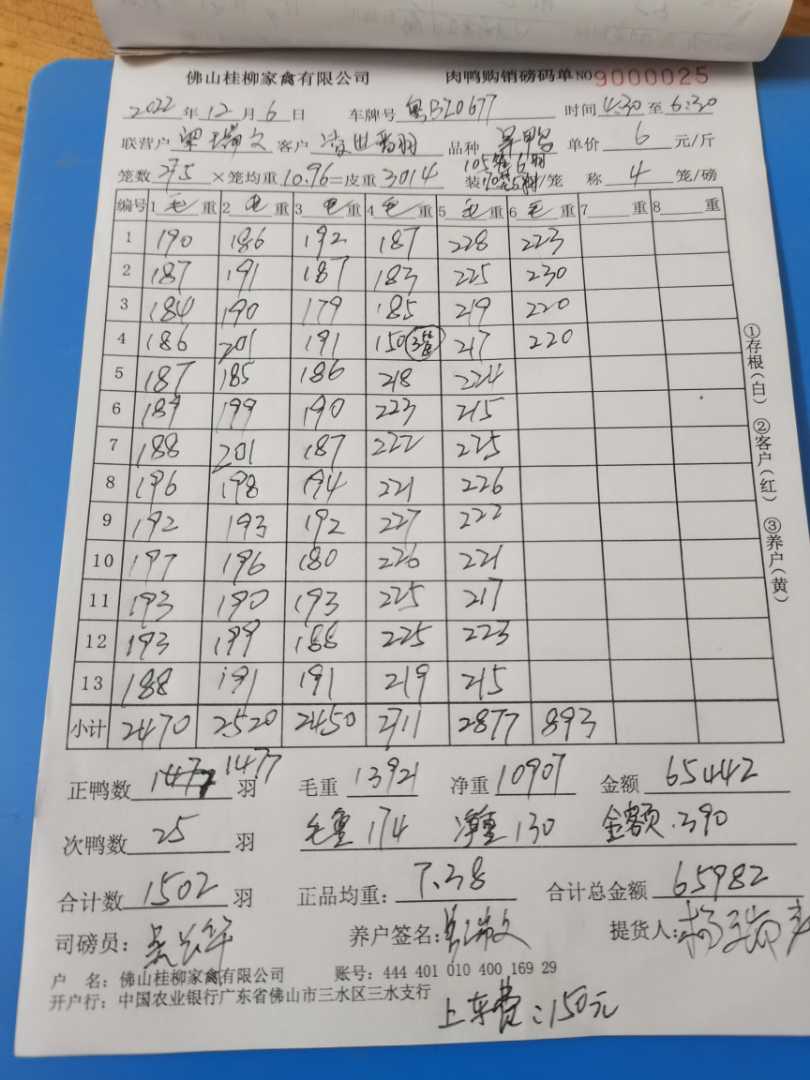 佛山桂柳家禽有限公司 肉鸭购销磅码单 NO 9000025
2022年12月6日 车牌号 粤BZ0677 时间 4:30 至 6:30
联营户 梁瑞文 客户 品种 单价 6 元/斤
笼数 275 ×笼均重 10.96 =皮重 3014 装 /笼 称 4 笼/磅
编号 1 毛 重 2 毛 重 3 毛 重 4 毛 重 5 毛 重 6 毛 重 7 重 8 重
1 190 186 192 187 228 223
2 187 191 187 183 225 230
3 184 190 179 185 219 220
4 186 201 191 150 217 220
5 187 185 186 218 224
6 189 199 190 223 215
7 188 201 187 222 225
8 196 198 194 221 226
9 192 193 192 227 222
10 197 196 180 226 221
11 193 190 193 225 217
12 193 199 188 225 223
13 188 191 191 219 215
小计 2470 2520 2450 2711 2877 893
正鸭数 1477 羽 毛重 13921 净重 10907 金额 65442
次鸭数 25 羽 毛重 174 净重 130 金额 390
合计数 1502 羽 正品均重: 7.38 合计总金额 65982
司磅员: 养户签名: 提货人:
户 名: 佛山桂柳家禽有限公司 账号: 444 401 010 400 169 29
开户行: 中国农业银行广东省佛山市三水区三水支行
上车费:150元
①存根(白) ②客户(红) ③养户(黄)